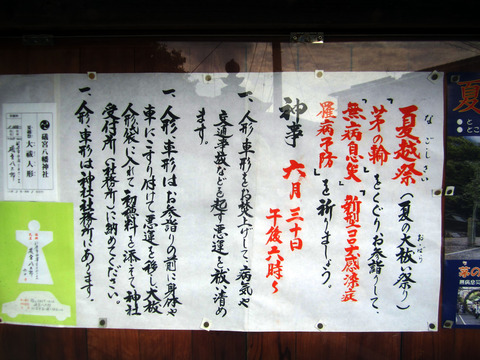 なごしさい
夏越祭（夏の大祓い祭り）
おおばらい
「茅の輪」をくぐりお参詣りして、
「無病息災」「新型コロナ感染症
罹病予防」を祈りましょう。
神事 六月三十日
午後六時～
一、人形・車形をお焚上げして、病気や
交通事故などを起す悪運を祓い清め
ます。
一、人形・車形はお参詣りの前に身体や
車にこすり付けて悪運を移し大祓
人形袋に入れて初穂料と添えて神社
受付所（社務所）に納めてください。
一、人形・車形は神社社務所にあります。
磯宮八幡神社
大祓人形
夏